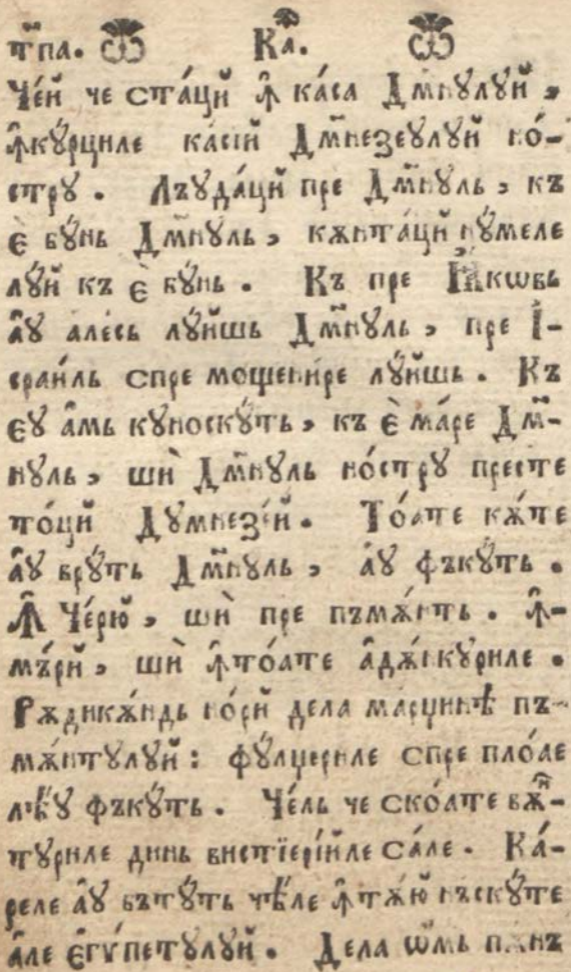 т҃па. Ка҃.
Че́й че ста́цй ꙟ ка́са Дмⷨнꙋлꙋй,
ꙟкꙋ́рциле ка́сїй Дмⷨнезеꙋлꙋй но́-
стрꙋ. Лъꙋда́цй пре Дмⷨнꙋль, къ
є҆̀ бꙋ́нь Дмⷨнꙋль, кѫнта́цй нꙋ́мелє
лꙋ́й къ є҆̀ бꙋ́нь. Къ пре І҆а́кѡвь
а҆́ꙋ але́сь лꙋ́йшь Дмⷨнꙋль, пре І҆-
сраи́ль спре мощени́ре лꙋ́йшь. Къ
єꙋ а҆́мь кꙋноскꙋ́ть, къ є҆̀ ма́ре Дмⷨ-
нꙋль, шѝ Дмⷨнꙋль но́стрꙋ престе
то́цй Дꙋмнезе́й. То́ате кѫ́те
а҆́ꙋ врꙋ́ть Дмⷨнꙋль, а҆́ꙋ фъкꙋ́ть.
Ꙟ Че́рю, шѝ пре пъмѫ́нть. ꙟ-
мъ́рй, шѝ ꙟто́ате а҆дѫ́нкꙋриле.
Рѫдикѫ́ндь но́рй дела марцинѣ пъ-
мѫ́нтꙋлꙋй: фꙋ́лџериле спре пло́ае
лѣ́ꙋ фъкꙋ́ть. Че́ль че ско́ате вѫ́ⷩ-
тꙋриле динь вистїерїйле са́ле. Ка́-
реле а҆́ꙋ бътꙋ́ть чѣ́ле ꙟтѫ́ю нъскꙋ́те
а҆́ле є҆гѵ́петꙋлꙋй. Дела ѡ҆́мь пѫнъ